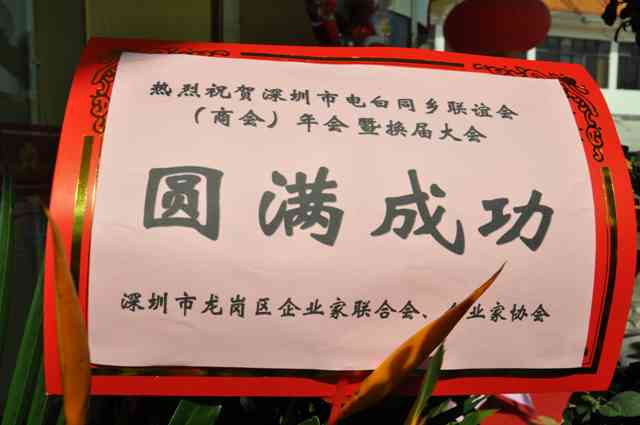 热烈祝贺深圳市电白同乡联谊会
（商会）年会暨换届大会
圆满成功
深圳市龙岗区企业家联合会、业家协会